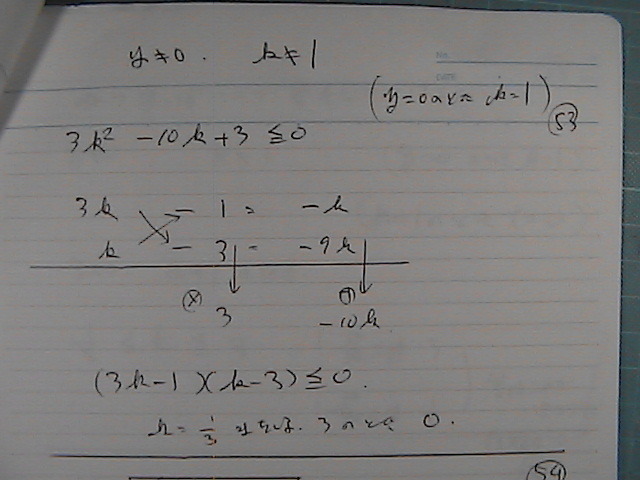 y≠0. k≠1
NO.
DATE
(y=0のとき k=1)
53
3k² -10k+3 ≦0
3k - 1 = -k
k - 3 = -9k
× 3 + -10k
(3k-1)(k-3)≦0.
k = 1/3 または. 3のとき 0.
54